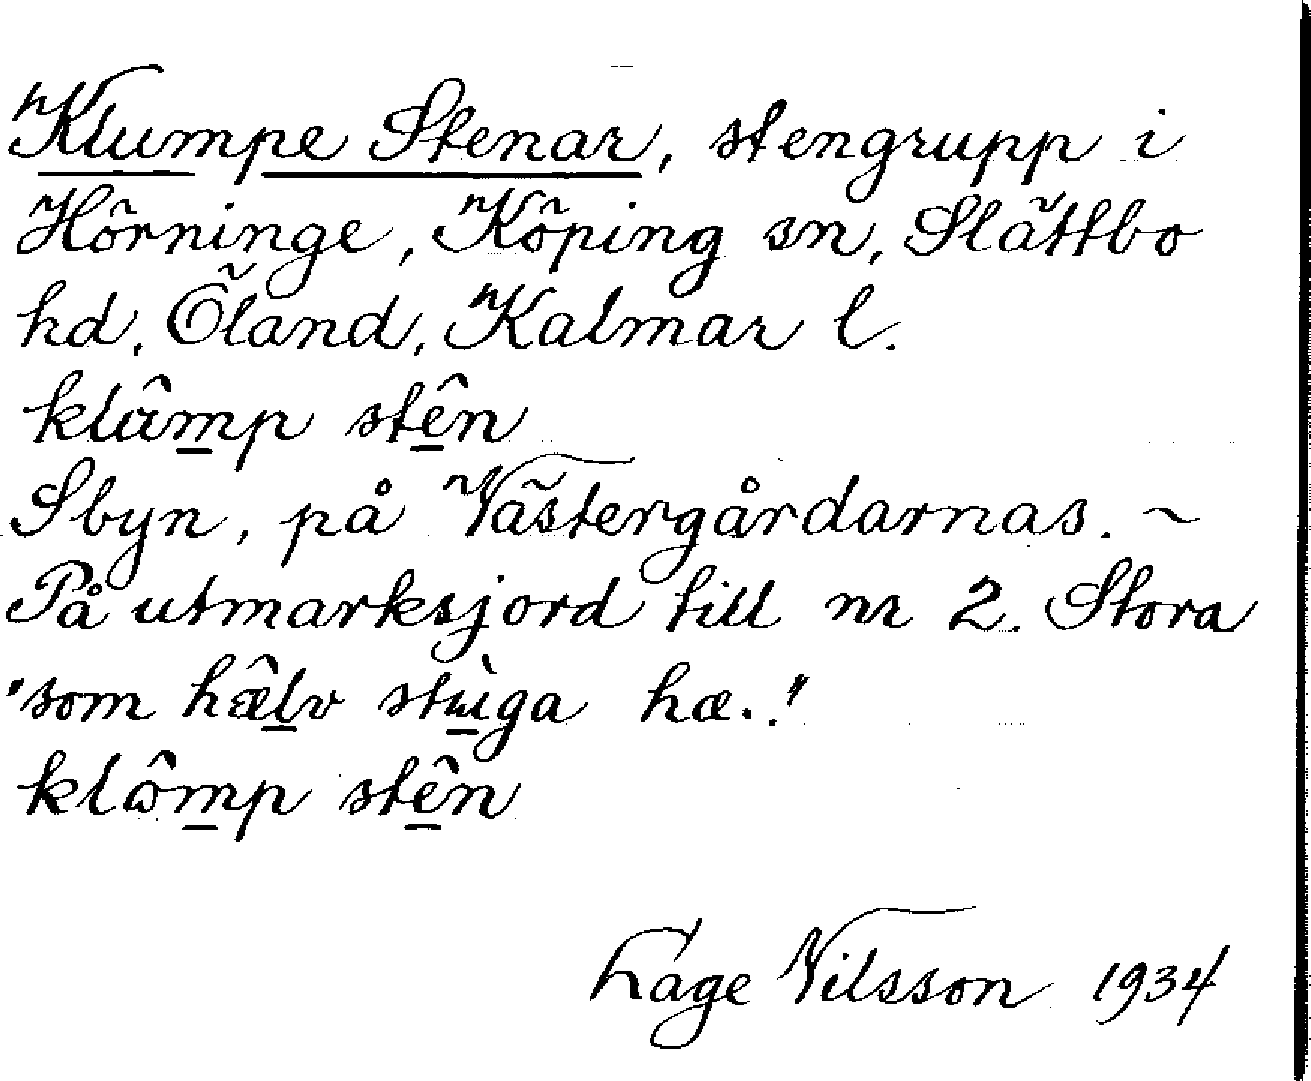 Klumpe Stenar, stengrupp i
Hörninge, Köping sn, Slättbo
hd, Öland, Kalmar l.
klâmp stên
Sbyn, på Västergårdarnas. ~
På utmarksjord till nr 2. Stora
"som hæ̂lv stùga hæ.."
klômp stên
Låge Nilsson 1934